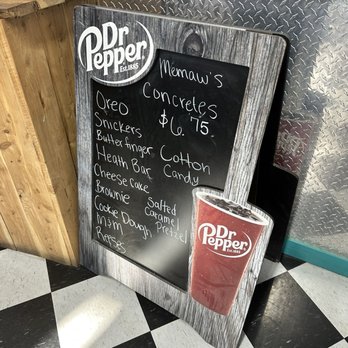 Dr Pepper
EST. 1885
Memaw's
Concretes
$6.75.
Oreo
Snickers
Butterfinger Cotton
Heath Bar Candy
Cheese Cake
Brownie Salted
Cookie Dough Caramel
M&M Pretzel
Reeses
Dr Pepper
EST. 1885